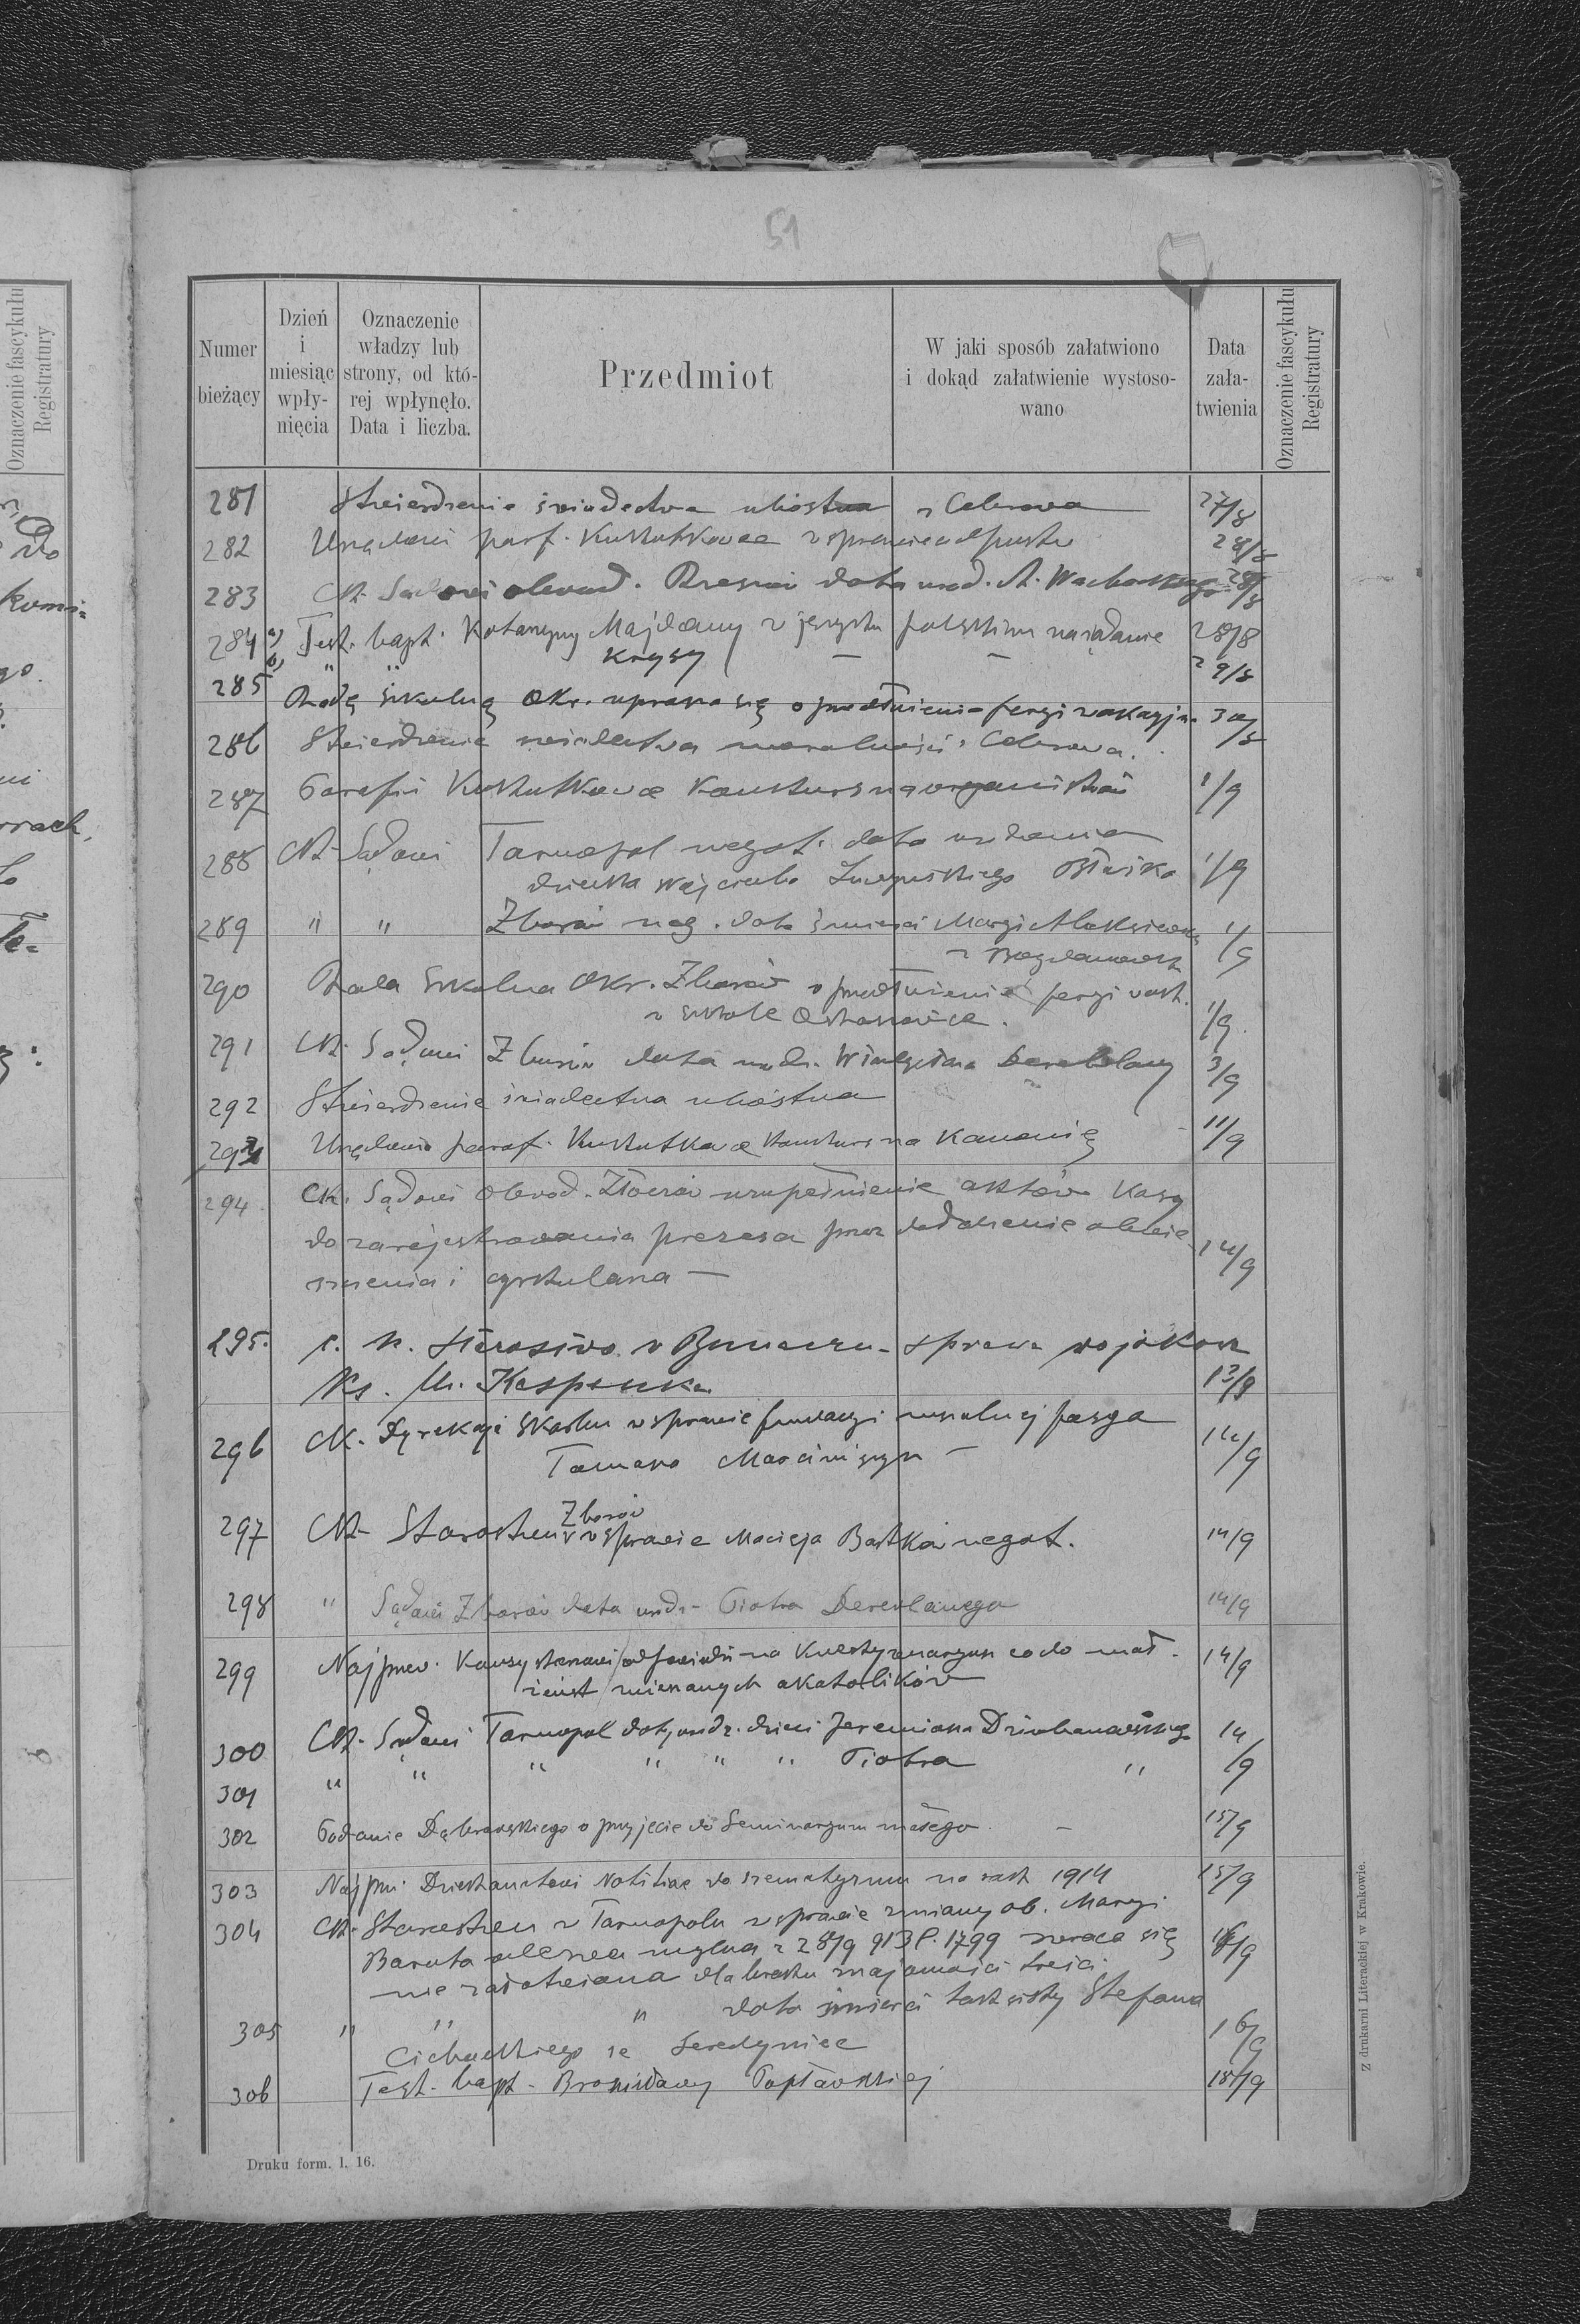 51
Numer bieżący
Dzień i miesiąc wpłynięcia
Oznaczenie władzy lub strony, od której wpłynęło. Data i liczba.
Przedmiot
W jaki sposób załatwiono i dokąd załatwienie wystosowano
Data załatwienia
Oznaczenie fascykułu Registratury
281 Stwierdzenie świadectwa ubóstwa z Cebrowa 27/8
282 Urzędowi par. Kukutkowce w sprawie odpustu 28/8
283 Ck. Sądowi obwod. Rzeszów data urod. A. 28/8
284 a) Test. bapt. Katarzyny Majdany w języku polskim na żądanie 28/8
b) " " Krysy — — 29/8
285 Radę szkolną Okr. uprasza się o przedłużenie feryi wakacyjn. 30/8
286 Stwierdzenie świadectwa moralności z Cebrowa.
287 Parafii Kukutkowce konkurs na organistów 1/9
288 Ck. Sądowi Tarnopol negat. data urodzenia
dziecka Wojciecha 1/9
289 " " Zborów neg. data śmierci Maryi 1/9
290 Rada Szkolna Okr. Zborów o przedłużenie feryi wak.
w szkole Ostaszowce. 1/9
291 Ck. Sądowi Zborów data urodz. Derewlany 3/9
292 Stwierdzenie świadectwa ubóstwa
293 Urzędowi paraf. Kukutkowce konkurs na Kanonię 11/9
294 Ck. Sądowi Obwod. Złoczów uzupełnienie aktów Kasy
do zarejestrowania prezesa przez dodołączenie obwie
szczenia i cyrkularza — 14/9
295. c. k. Starostwo w sprawa wojskowa
Ks. M. 13/9
296 Ck. Dyrekcyi Skarbu w sprawie fundacyi mszalnej
Marciniszyn — 14/9
297 Ck. Starostwu Zborów w sprawie Macieja Bartków negat. 14/9
298 " Sądowi Zborów data urodz. Piotra Derewlanego 14/9
299 Najprzew. Konsystorzowi odpowiedź na kwestyonaryusz co do mał-
żeństw mieszanych akatolików 14/9
300 Ck. Sądowi Tarnopol daty urodz. dzieci Jeremiasza 14/9
301 " " " " " " Piotra "
302 Podanie Dąbrowskiego o przyjęcie do Seminaryum małego — 15/9
303 Najprz. Dziekanatowi Notitiae do szematyzmu na rok 1914 15/9
304 Ck. Starostwu w Tarnopolu w sprawie zmiany ob. Maryi
Baruta z 28/9 913 l. 1799 zwraca się
nie załatwiona dla braku znajomości treści. 16/9
305 " " " data śmierci Stefana
Cichockiego ze Seredyniec 16/9
306 Test. bapt. Bronisławy Popławskiej 18/9
Druku form. l. 16.
Z drukarni Literackiej w Krakowie.